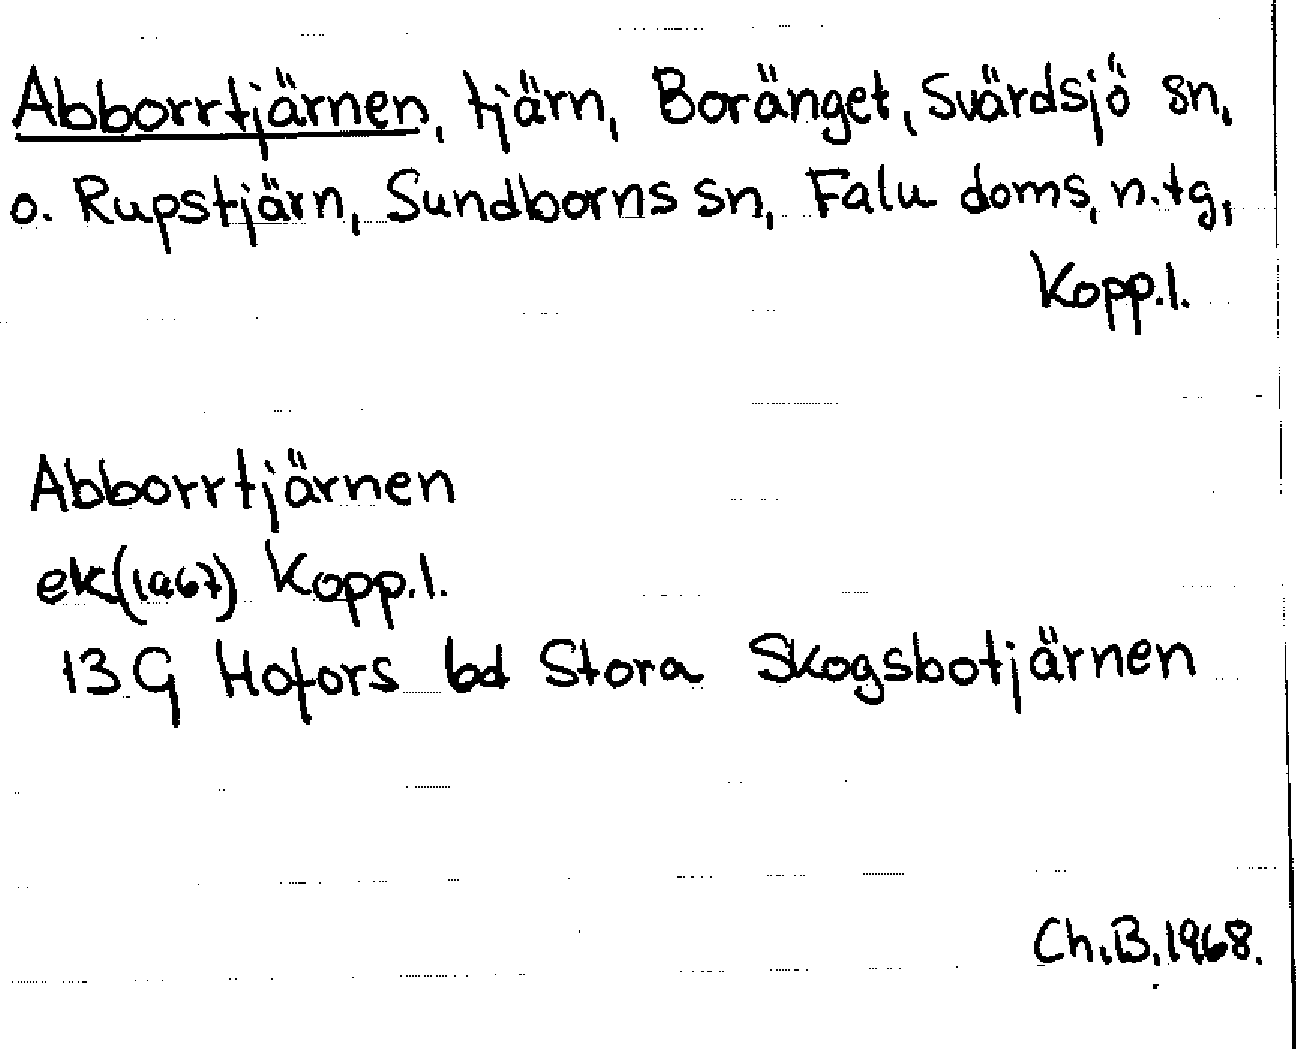 Abborrtjärnen, tjärn, Boränget, Svärdsjö sn,
o. Rupstjärn, Sundborns sn, Falu doms, n. tg,
Kopp. l.
Abborrtjärnen
ek (1967) Kopp. l.
13 G Hofors bd Stora Skogsbotjärnen
Ch. B. 1968.